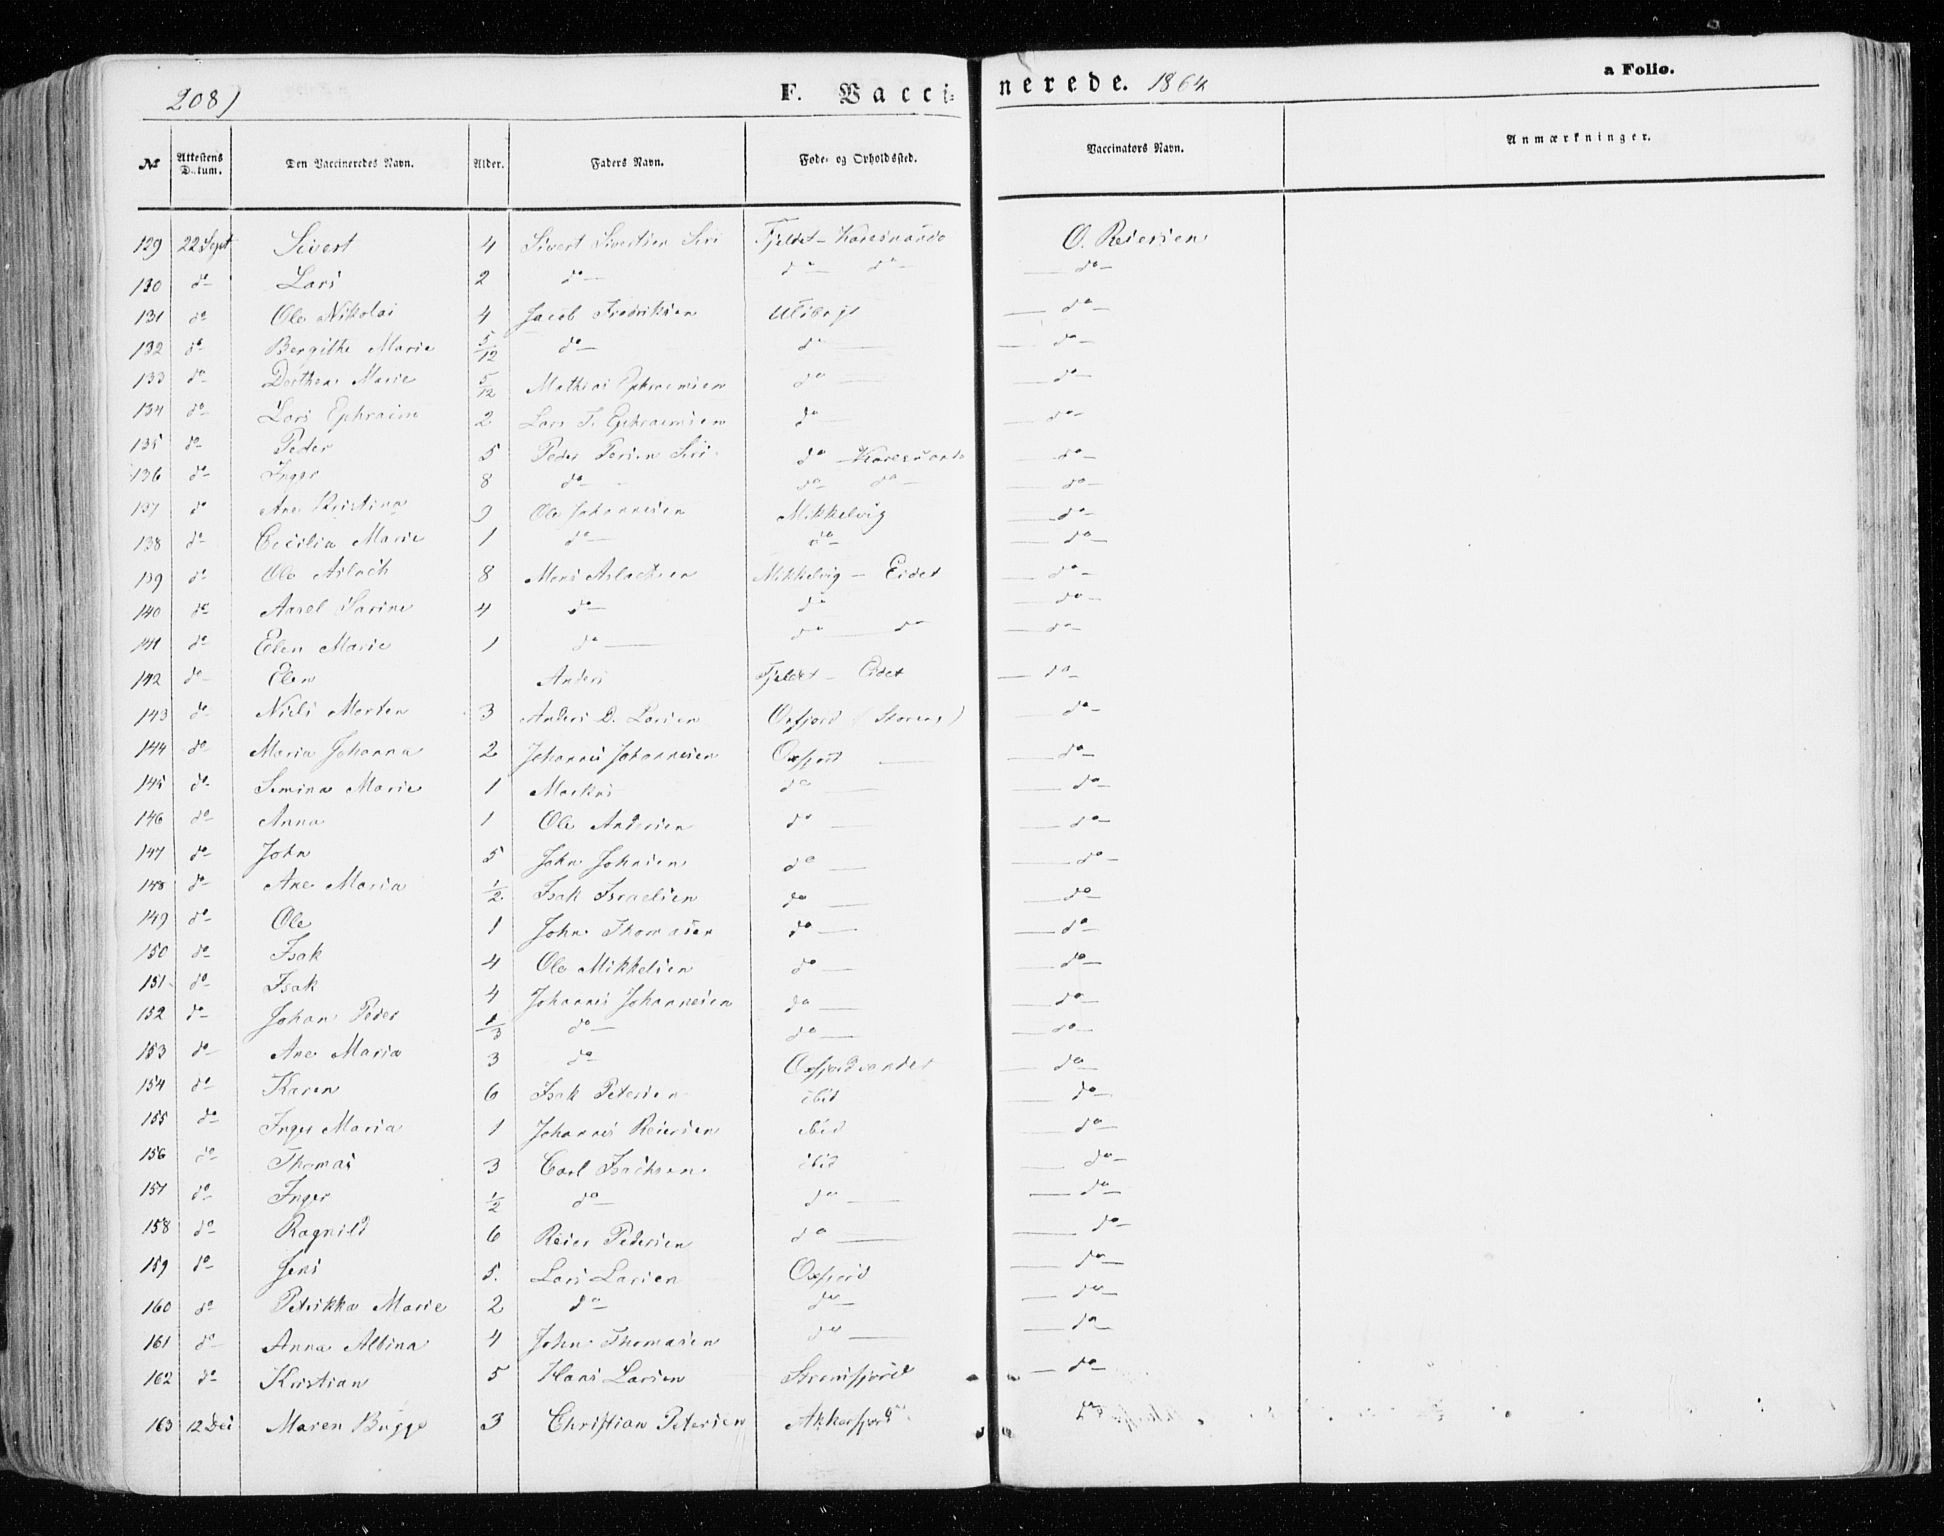 208)
F. Vaccinerede. 1864
a Folio.
№ | Attestens Datum. | Den Vaccineredes Navn. | Alder. | Faders Navn. | Føde- og Opholdssted. | Vaccinators Navn. | Anmærkninger.
129 22 Sept Sivert 4 Sivert Sivertsen Siri Fjeldet - Karesuando O. Reiersen
130 do Lars 2 do do do do
131 do Ole Nikolai 4 Jacob Fredriksen do
132 do Bergithe Marie 5/12 do do do
133 do Dorthea Marie 5/12 Mathias Ephraimsen do do
134 do Lars Ephraim 2 Lars T. Ephraimsen do do
135 do Peder 5 Peder Persen Siri do Karesuando do
136 do Inger 8 do do do do
137 do Ane Kristina 9 Ole Johannesen Mikkelvig do
138 do Cecilia Marie 1 do do do
139 do Ole Aslach 8 Mons Aslachsen Mikkelvig - Eidet do
140 do Marie 4 do do do
141 do Elen Marie 1 do do do do
142 do Elen Anders Fjeldet - Eidet do
143 do Niels Morten 3 Anders D. Larsen Oxfjord do
144 do Maria Johanna 2 Johannes Johannesen Oxfjord do
145 do Simina Marie 1 Markus do do
146 do Anna 1 Ole Andersen do do
147 do John 5 John Johnsen do do
148 do Ane Maria 1/2 Isak Israelsen do do
149 do Ole 1 John Thomasen do do
150 do Isak 4 Ole Mikkelsen do do
151 do Isak 4 Johannes Johannesen do do
152 do Johan Peder 1/3 do do do
153 do Ane Maria 3 do Oxfjordvandet do
154 do Karen 6 Isak Petersen ibid do
155 do Inger Maria 1 Johannes Reiersen ibid do
156 do Thomas 3 Carl Isachsen ibid do
157 do Inger 1/2 do do do
158 do Ragnild 6 Reier Pedersen do do
159 do Jens 5. Lars Larsen Oxfjord do
160 do Petrikka Marie 2 do do do
161 do Anna Albina 4 John Thomasen do do
162 do Kristian 5 Hans Larsen Stromfjord do
163 12 Dec Maren Bugge 3 Christian Petersen Akkarfjord do